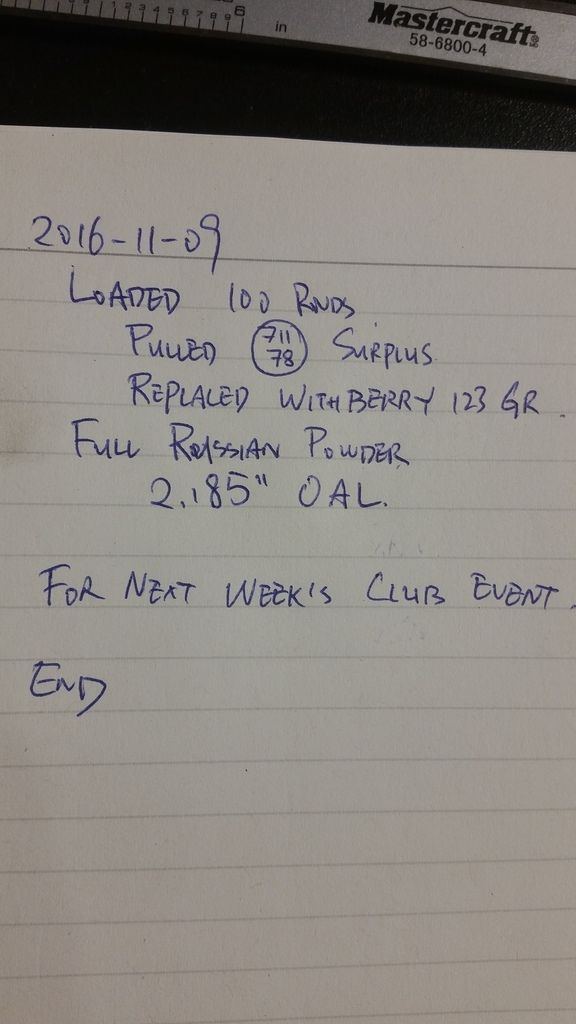 1 2 3 4 5 6 7 8 9 6 in
Mastercraft®
58-6800-4
2016-11-09
LOADED 100 RNDS
PULLED 711 78 SURPLUS.
REPLACED WITH BERRY 123 GR.
FULL RUSSIAN POWDER
2.185" OAL.
FOR NEXT WEEK'S CLUB EVENT.
END